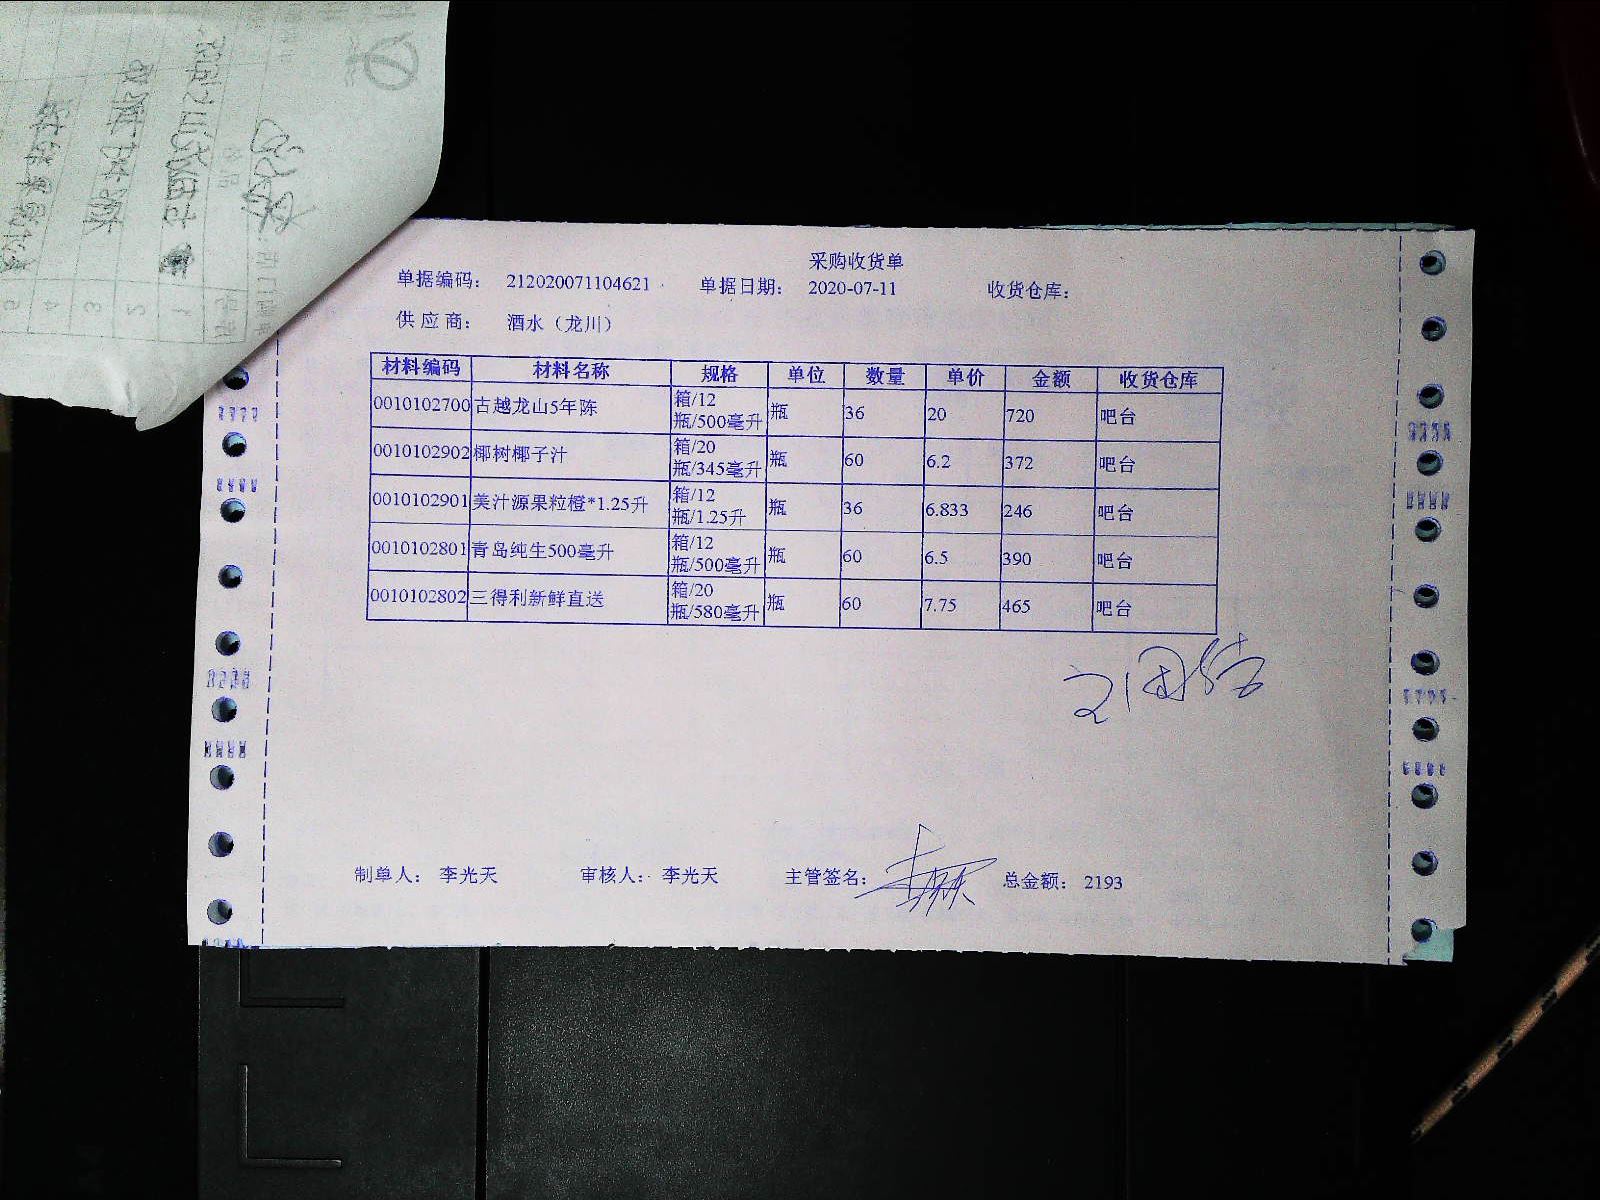 采购收货单
单据编码： 212020071104621 单据日期： 2020-07-11 收货仓库：
供应商： 酒水（龙川）
材料编码 材料名称 规格 单位 数量 单价 金额 收货仓库
0010102700 古越龙山5年陈 箱/12瓶/500毫升 瓶 36 20 720 吧台
0010102902 椰树椰子汁 箱/20瓶/345毫升 瓶 60 6.2 372 吧台
0010102901 美汁源果粒橙*1.25升 箱/12瓶/1.25升 瓶 36 6.833 246 吧台
0010102801 青岛纯生500毫升 箱/12瓶/500毫升 瓶 60 6.5 390 吧台
0010102802 三得利新鲜直送 箱/20瓶/580毫升 瓶 60 7.75 465 吧台
制单人： 李光天 审核人： 李光天 主管签名： 总金额： 2193